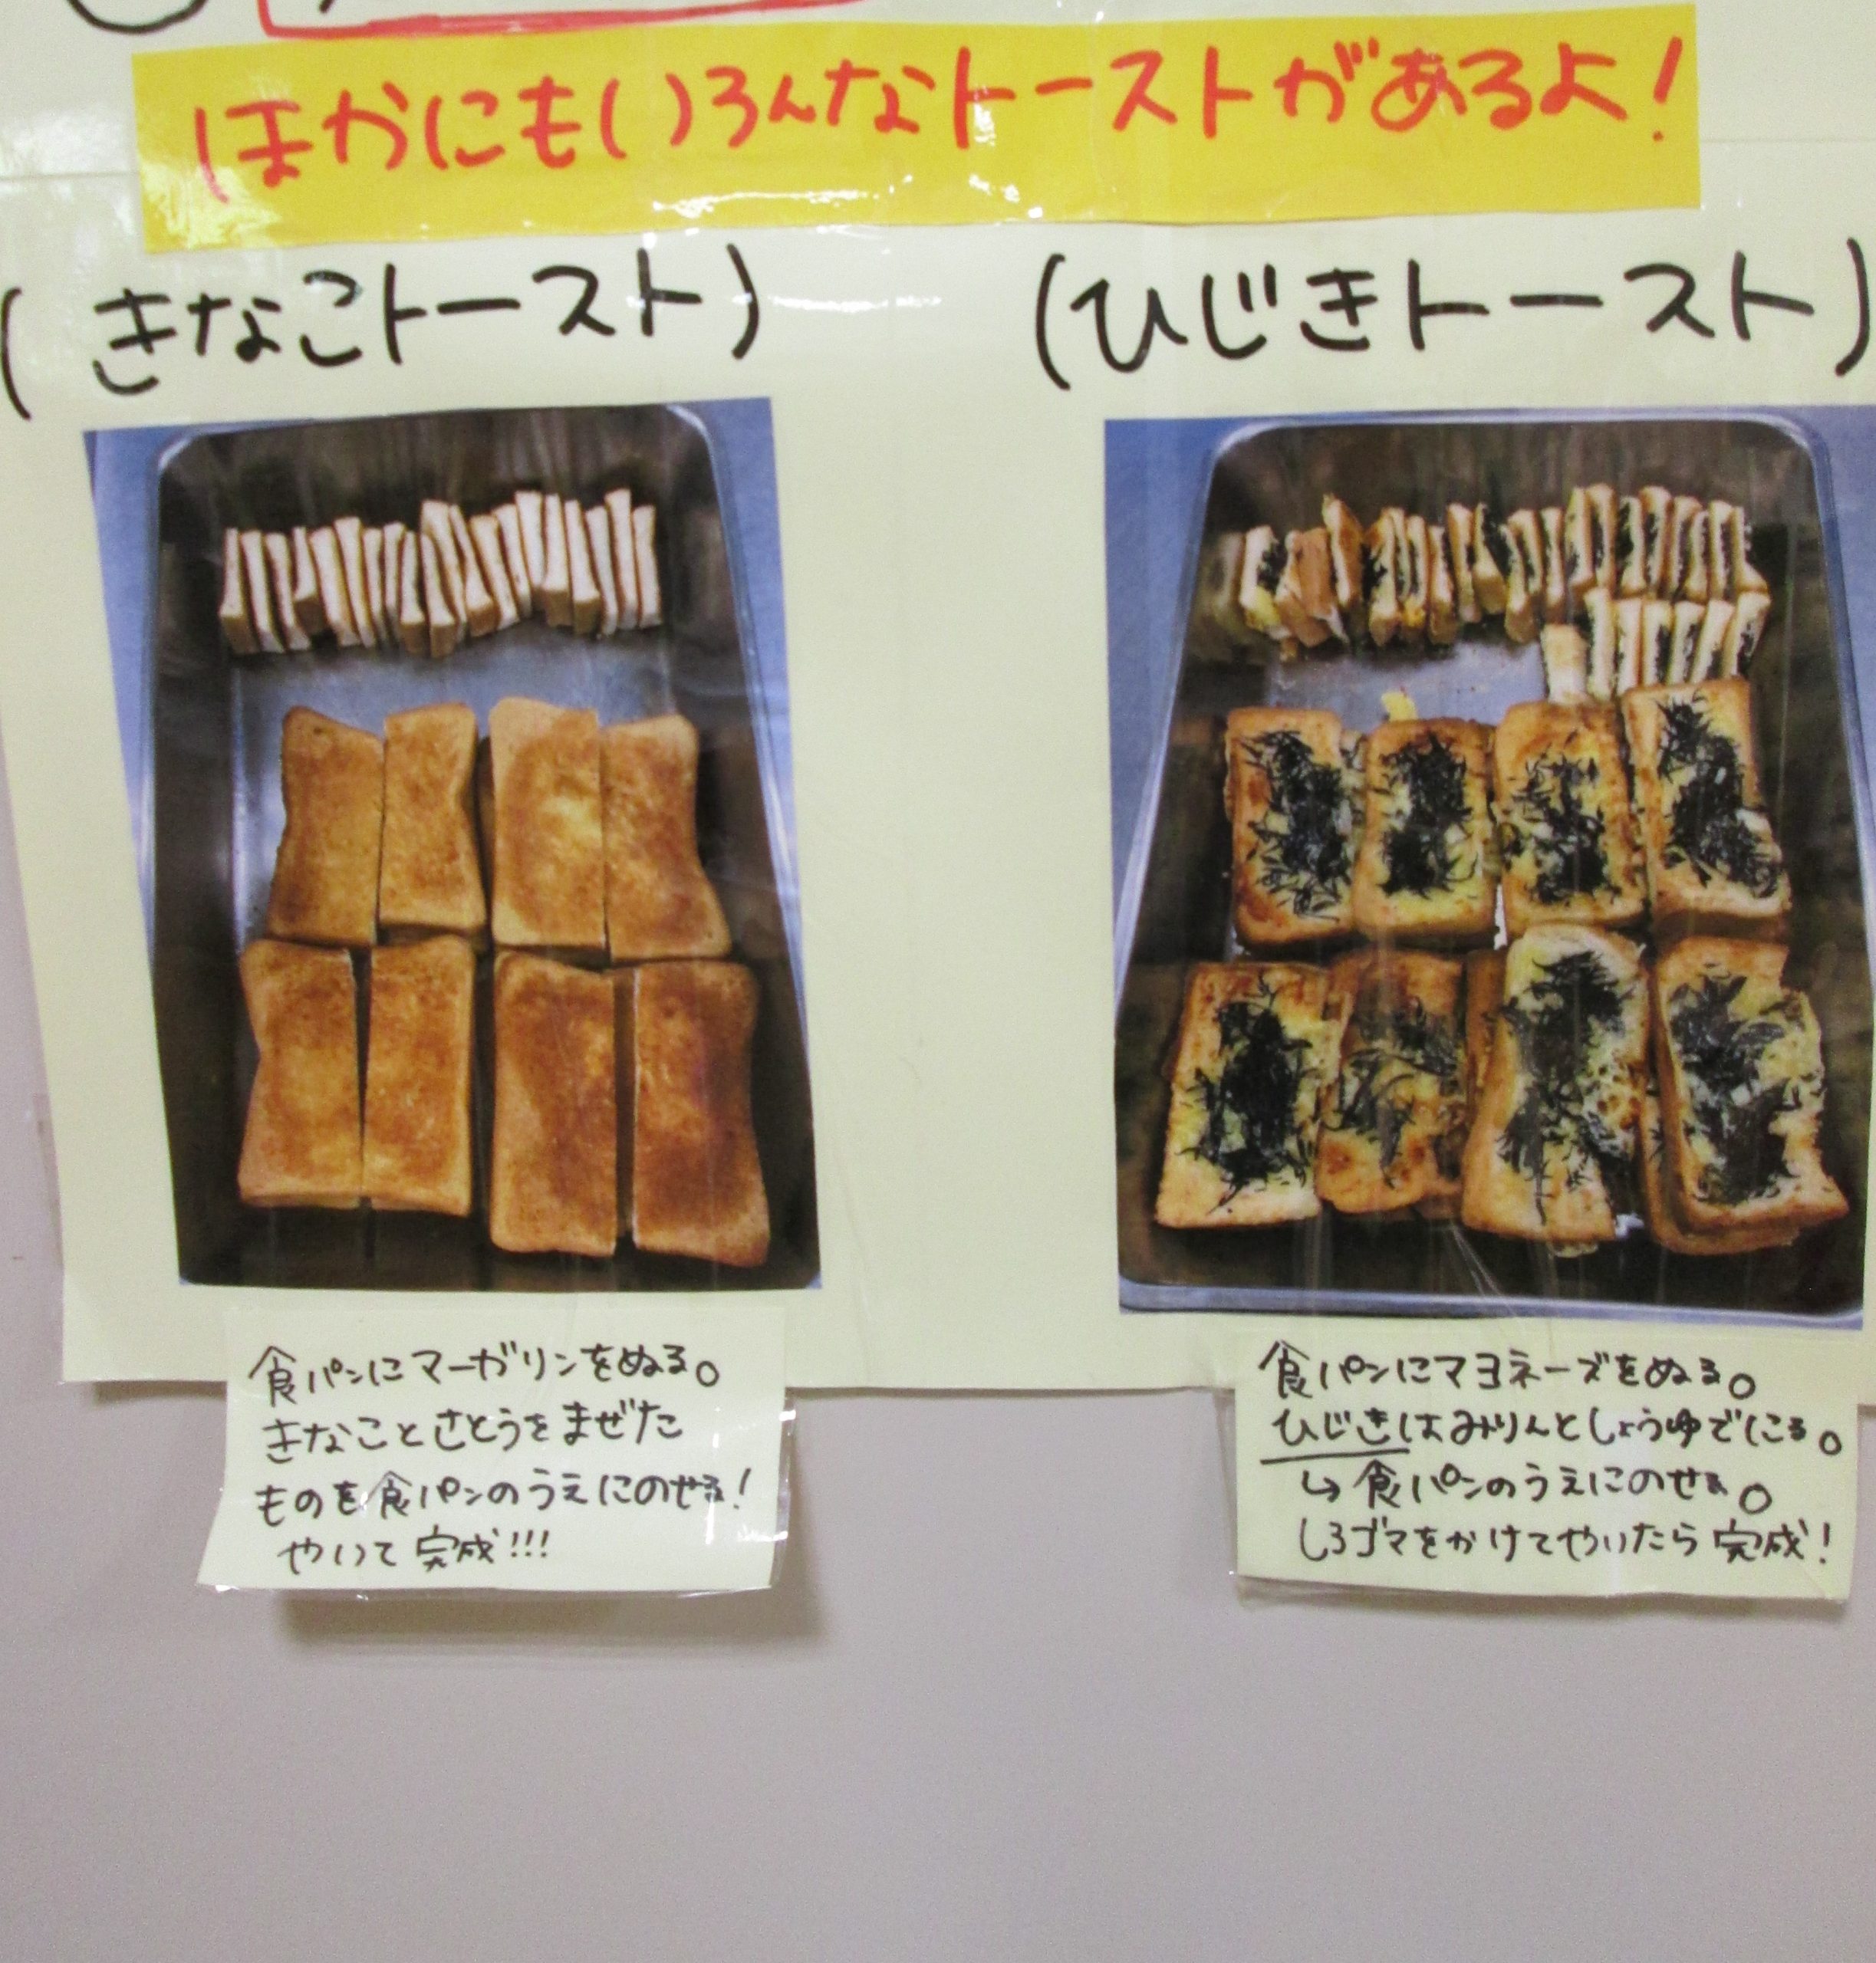 ほかにもいろんなトーストがあるよ!
(きなこトースト)
(ひじきトースト)
食パンにマーガリンをぬる。
きなことさとうをまぜた
ものを食パンのうえにのせる!
やいて完成!!!
食パンにマヨネーズをぬる。
ひじきはみりんとしょうゆでにる。
↳食パンのうえにのせる。
しろゴマをかけてやいたら完成!